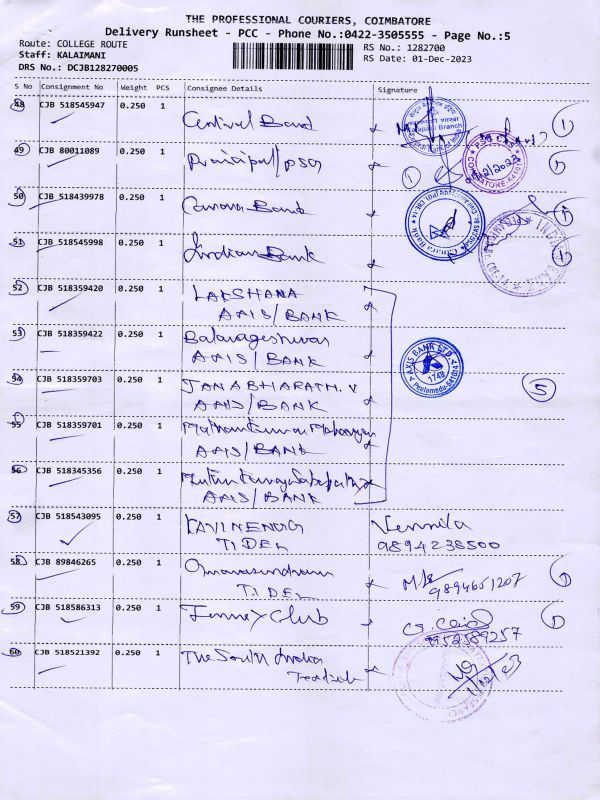 THE PROFESSIONAL COURIERS, COIMBATORE
Delivery Runsheet - PCC - Phone No.:0422-3505555 - Page No.:5
Route: COLLEGE ROUTE
RS No.: 1282700
Staff: KALAIMANI
RS Date: 01-Dec-2023
DRS No.: DCJB128270005
S No Consignment No Weight PCS Consignee Details Signature
48 CJB 518545947 0.250 1 Central Bank
49 CJB 80011089 0.250 1 Principal/PSG
50 CJB 518439978 0.250 1 Canara Bank
51 CJB 518545998 0.250 1 Indian Bank
52 CJB 518359420 0.250 1 LAKSHANA
AXIS/BANK
53 CJB 518359422 0.250 1
AXIS/BANK
AXIS BANK LTD.
1748
Peelamedu-641004
54 CJB 518359703 0.250 1 JANABHARATH.V
5
AXIS/BANK
55 CJB 518359701 0.250 1
AXIS/BANK
56 CJB 518345356 0.250 1
AXIS/BANK
57 CJB 518543095 0.250 1 Vennila
TIDEL 9894238500
58 CJB 89846265 0.250 1
TIDEL 9894651207
59 CJB 518586313 0.250 1 Club
9952589257
60 CJB 518521392 0.250 1 The South India
1/12/23